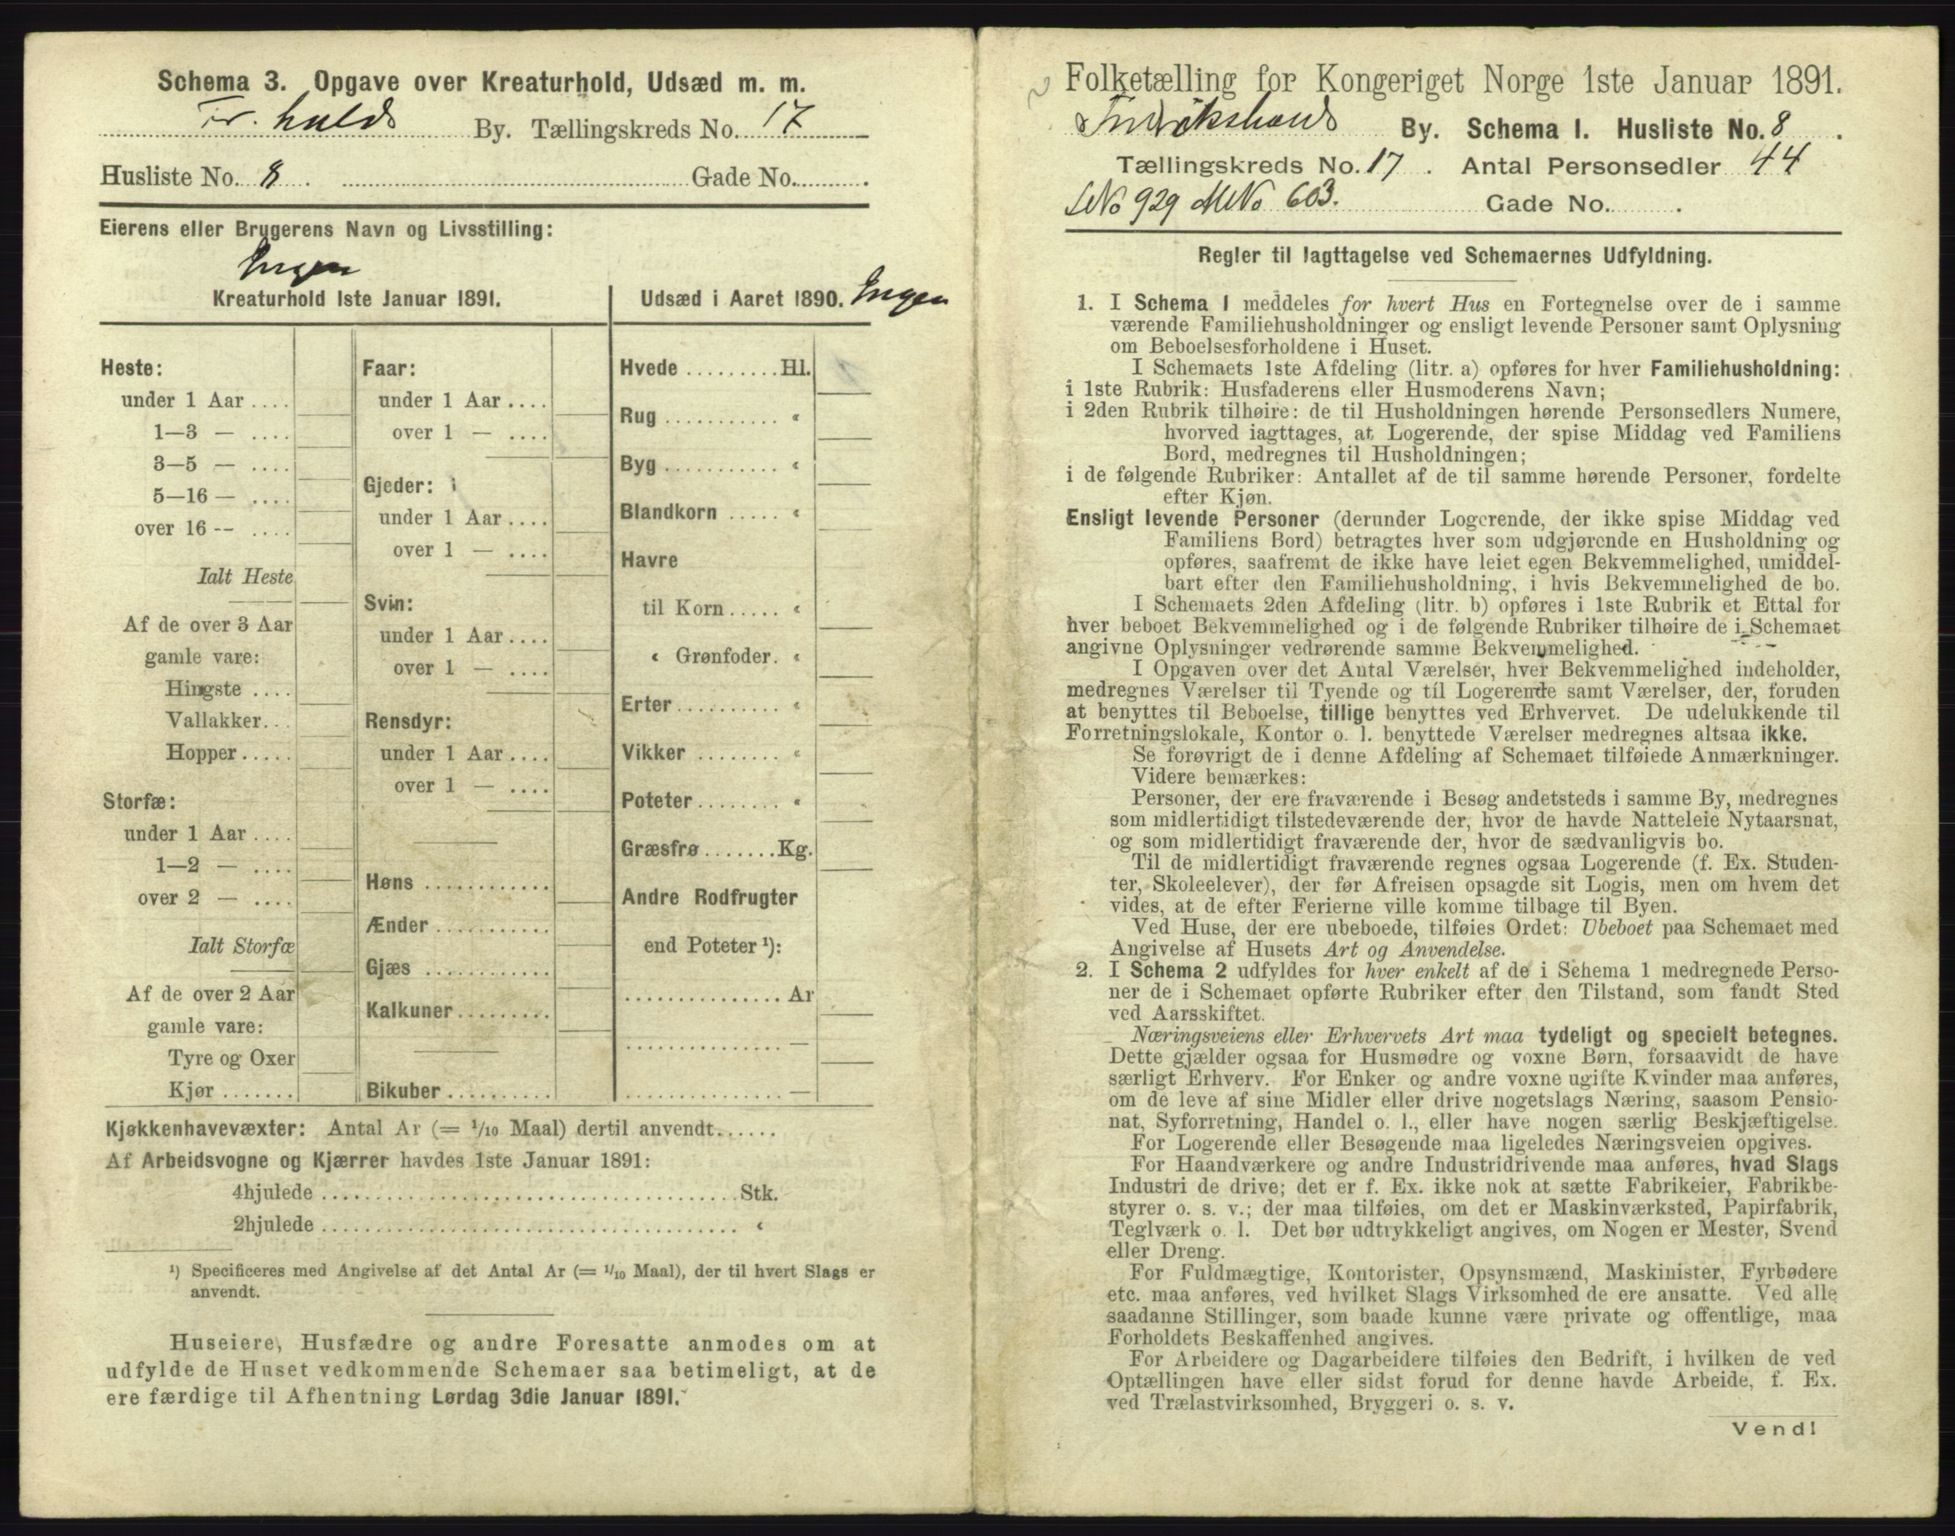 Schema 3. Opgave over Kreaturhold, Udsæd m. m.
Fr.halds By. Tællingskreds No. 17
Husliste No. 8. Gade No.
Eierens eller Brugerens Navn og Livsstilling:
Ingen
Kreaturhold 1ste Januar 1891.
Heste:
under 1 Aar....
1—3 — ....
3—5 — ....
5—16 — ....
over 16 -- ....
Ialt Heste
Af de over 3 Aar
gamle vare:
Hingste ....
Vallakker...
Hopper.....
Storfæ:
under 1 Aar....
1—2 — ....
over 2 — ....
Ialt Storfæ
Af de over 2 Aar
gamle vare:
Tyre og Oxer
Kjør.......
Faar:
under 1 Aar....
over 1 — ....
Gjeder:
under 1 Aar....
over 1 — ....
Svin:
under 1 Aar....
over 1 — ....
Rensdyr:
under 1 Aar....
over 1 — ....
Høns ............
Ænder ...........
Gjæs ............
Kalkuner.........
Bikuber ..........
Udsæd i Aaret 1890. Ingen
Hvede .........Hl.
Rug ........... «
Byg ........... «
Blandkorn ..... «
Havre
til Korn..... «
« Grønfoder. «
Erter.......... «
Vikker ........ «
Poteter........ «
Græsfrø.......Kg.
Andre Rodfrugter
end Poteter ¹):
...............Ar
............... —
............... —
Kjøkkenhavevæxter: Antal Ar (= 1/10 Maal) dertil anvendt......
Af Arbeidsvogne og Kjærrer havdes 1ste Januar 1891:
4hjulede ......................................Stk.
2hjulede ...................................... «
¹) Specificeres med Angivelse af det Antal Ar (= 1/10 Maal), der til hvert Slags er
anvendt.
Huseiere, Husfædre og andre Foresatte anmodes om at
udfylde de Huset vedkommende Schemaer saa betimeligt, at de
ere færdige til Afhentning Lørdag 3die Januar 1891.
Folketælling for Kongeriget Norge 1ste Januar 1891.
Fredrikshalds By. Schema 1. Husliste No. 8.
Tællingskreds No. 17. Antal Personsedler 44
LNo 929 MNo 603. Gade No.
Regler til Iagttagelse ved Schemaernes Udfyldning.
1. I Schema 1 meddeles for hvert Hus en Fortegnelse over de i samme
værende Familiehusholdninger og ensligt levende Personer samt Oplysning
om Beboelsesforholdene i Huset.
I Schemaets 1ste Afdeling (litr. a) opføres for hver Familiehusholdning:
i 1ste Rubrik: Husfaderens eller Husmoderens Navn;
i 2den Rubrik tilhøire: de til Husholdningen hørende Personsedlers Numere,
hvorved iagttages, at Logerende, der spise Middag ved Familiens
Bord, medregnes til Husholdningen;
i de følgende Rubriker: Antallet af de til samme hørende Personer, fordelte
efter Kjøn.
Ensligt levende Personer (derunder Logerende, der ikke spise Middag ved
Familiens Bord) betragtes hver som udgjørende en Husholdning og
opføres, saafremt de ikke have leiet egen Bekvemmelighed, umiddel-
bart efter den Familiehusholdning, i hvis Bekvemmelighed de bo.
I Schemaets 2den Afdeling (litr. b) opføres i 1ste Rubrik et Ettal for
hver beboet Bekvemmelighed og i de følgende Rubriker tilhøire de i Schemaet
angivne Oplysninger vedrørende samme Bekvemmelighed.
I Opgaven over det Antal Værelser, hver Bekvemmelighed indeholder,
medregnes Værelser til Tyende og til Logerende samt Værelser, der, foruden
at benyttes til Beboelse, tillige benyttes ved Erhvervet. De udelukkende til
Forretningslokale, Kontor o. l. benyttede Værelser medregnes altsaa ikke.
Se forøvrigt de i denne Afdeling af Schemaet tilføiede Anmærkninger.
Videre bemærkes:
Personer, der ere fraværende i Besøg andetsteds i samme By, medregnes
som midlertidigt tilstedeværende der, hvor de havde Natteleie Nytaarsnat,
og som midlertidigt fraværende der, hvor de sædvanligvis bo.
Til de midlertidigt fraværende regnes ogsaa Logerende (f. Ex. Studen-
ter, Skoleelever), der før Afreisen opsagde sit Logis, men om hvem det
vides, at de efter Ferierne ville komme tilbage til Byen.
Ved Huse, der ere ubeboede, tilføies Ordet: Ubeboet paa Schemaet med
Angivelse af Husets Art og Anvendelse.
2. I Schema 2 udfyldes for hver enkelt af de i Schema 1 medregnede Perso-
ner de i Schemaet opførte Rubriker efter den Tilstand, som fandt Sted
ved Aarsskiftet.
Næringsveiens eller Erhvervets Art maa tydeligt og specielt betegnes.
Dette gjælder ogsaa for Husmødre og voxne Børn, forsaavidt de have
særligt Erhverv. For Enker og andre voxne ugifte Kvinder maa anføres,
om de leve af sine Midler eller drive nogetslags Næring, saasom Pensio-
nat, Syforretning, Handel o. l., eller have nogen særlig Beskjæftigelse.
For Logerende eller Besøgende maa ligeledes Næringsveien opgives.
For Haandværkere og andre Industridrivende maa anføres, hvad Slags
Industri de drive; det er f. Ex. ikke nok at sætte Fabrikeier, Fabrikbe-
styrer o. s. v.; der maa tilføies, om det er Maskinværksted, Papirfabrik,
Teglværk o. l. Det bør udtrykkeligt angives, om Nogen er Mester, Svend
eller Dreng.
For Fuldmægtige, Kontorister, Opsynsmænd, Maskinister, Fyrbødere
etc. maa anføres, ved hvilket Slags Virksomhed de ere ansatte. Ved alle
saadanne Stillinger, som baade kunne være private og offentlige, maa
Forholdets Beskaffenhed angives.
For Arbeidere og Dagarbeidere tilføies den Bedrift, i hvilken de ved
Optællingen have eller sidst forud for denne havde Arbeide, f. Ex.
ved Trælastvirksomhed, Bryggeri o. s. v.
Vend!